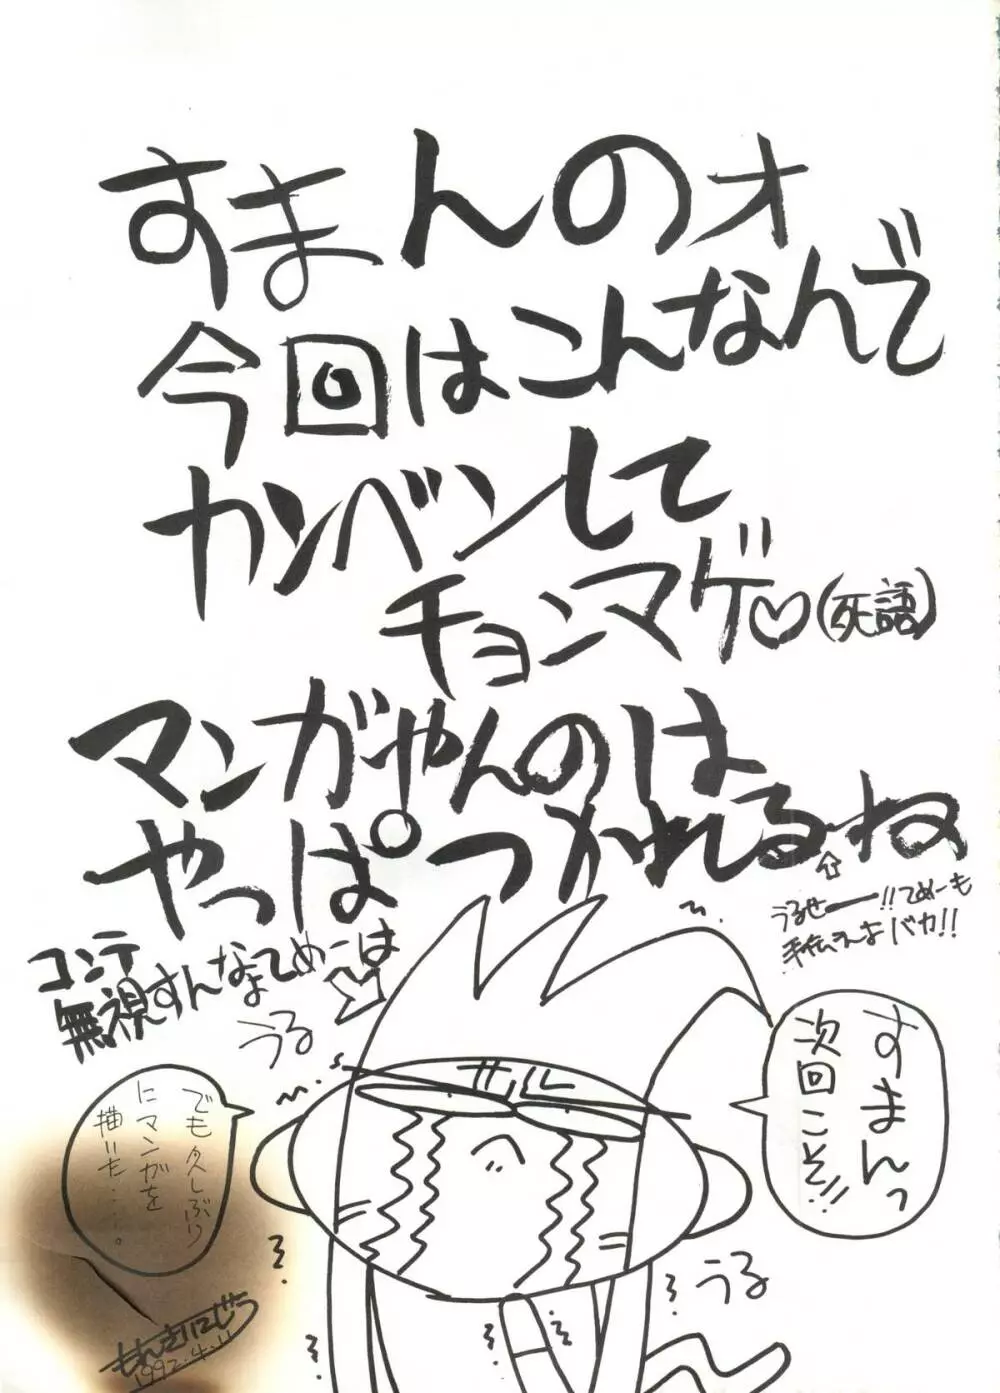 すまんのォ
今回はこんなんで
カンベンして
チョンマゲ♡(死語)
マンガやんのは
やっぱつかれるね
⇧
うるせー!!てめーも
手伝えよバカ!!
コンテ
無視すんなてめーは
うる
すまんっ
次回こそ!!
でも久しぶり
にマンガを
描いた・・・。
うる
もんきいにじう
1992.4.11